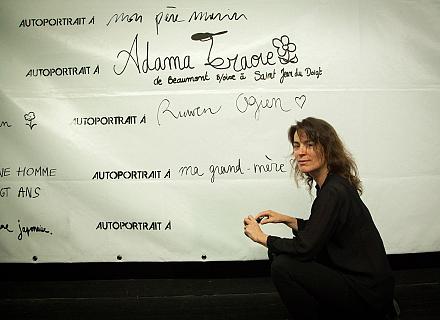 AUTOPORTRAIT À mon père marin
AUTOPORTRAIT À Adama Traoré
de Beaumont s/oise à Saint Jean du Doigt
AUTOPORTRAIT À Ruwen Ogien ♡
NE HOMME
GT ANS
AUTOPORTRAIT À ma grand-mère
japonaise.
AUTOPORTRAIT À